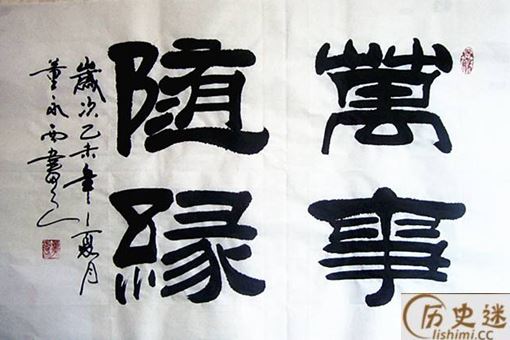 萬事
随緣
歲次乙未年夏月
董永西書
历史迷
lishimi.cc